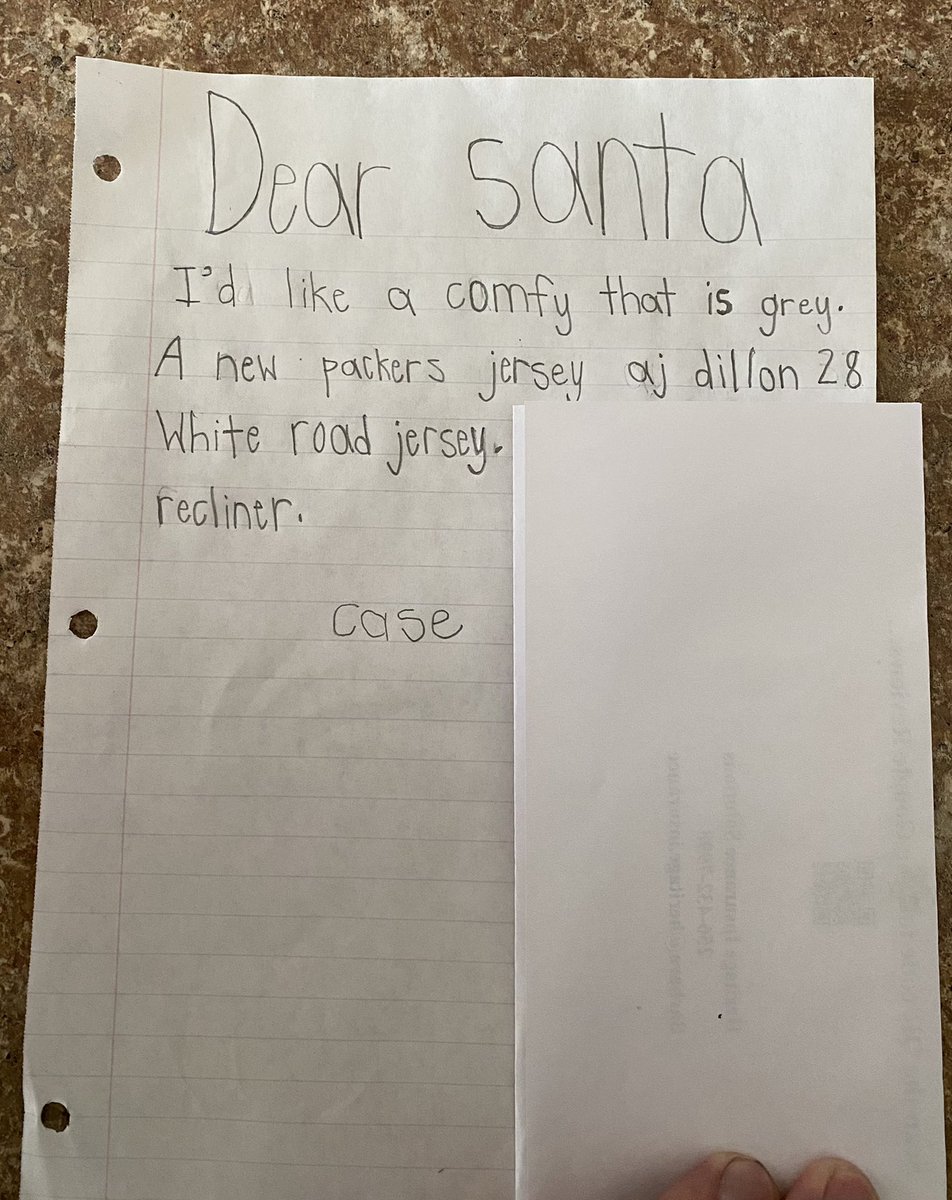 Dear Santa
I'd like a comfy that is grey.
A new packers jersey aj dillon 28
White road jersey.
recliner.
case